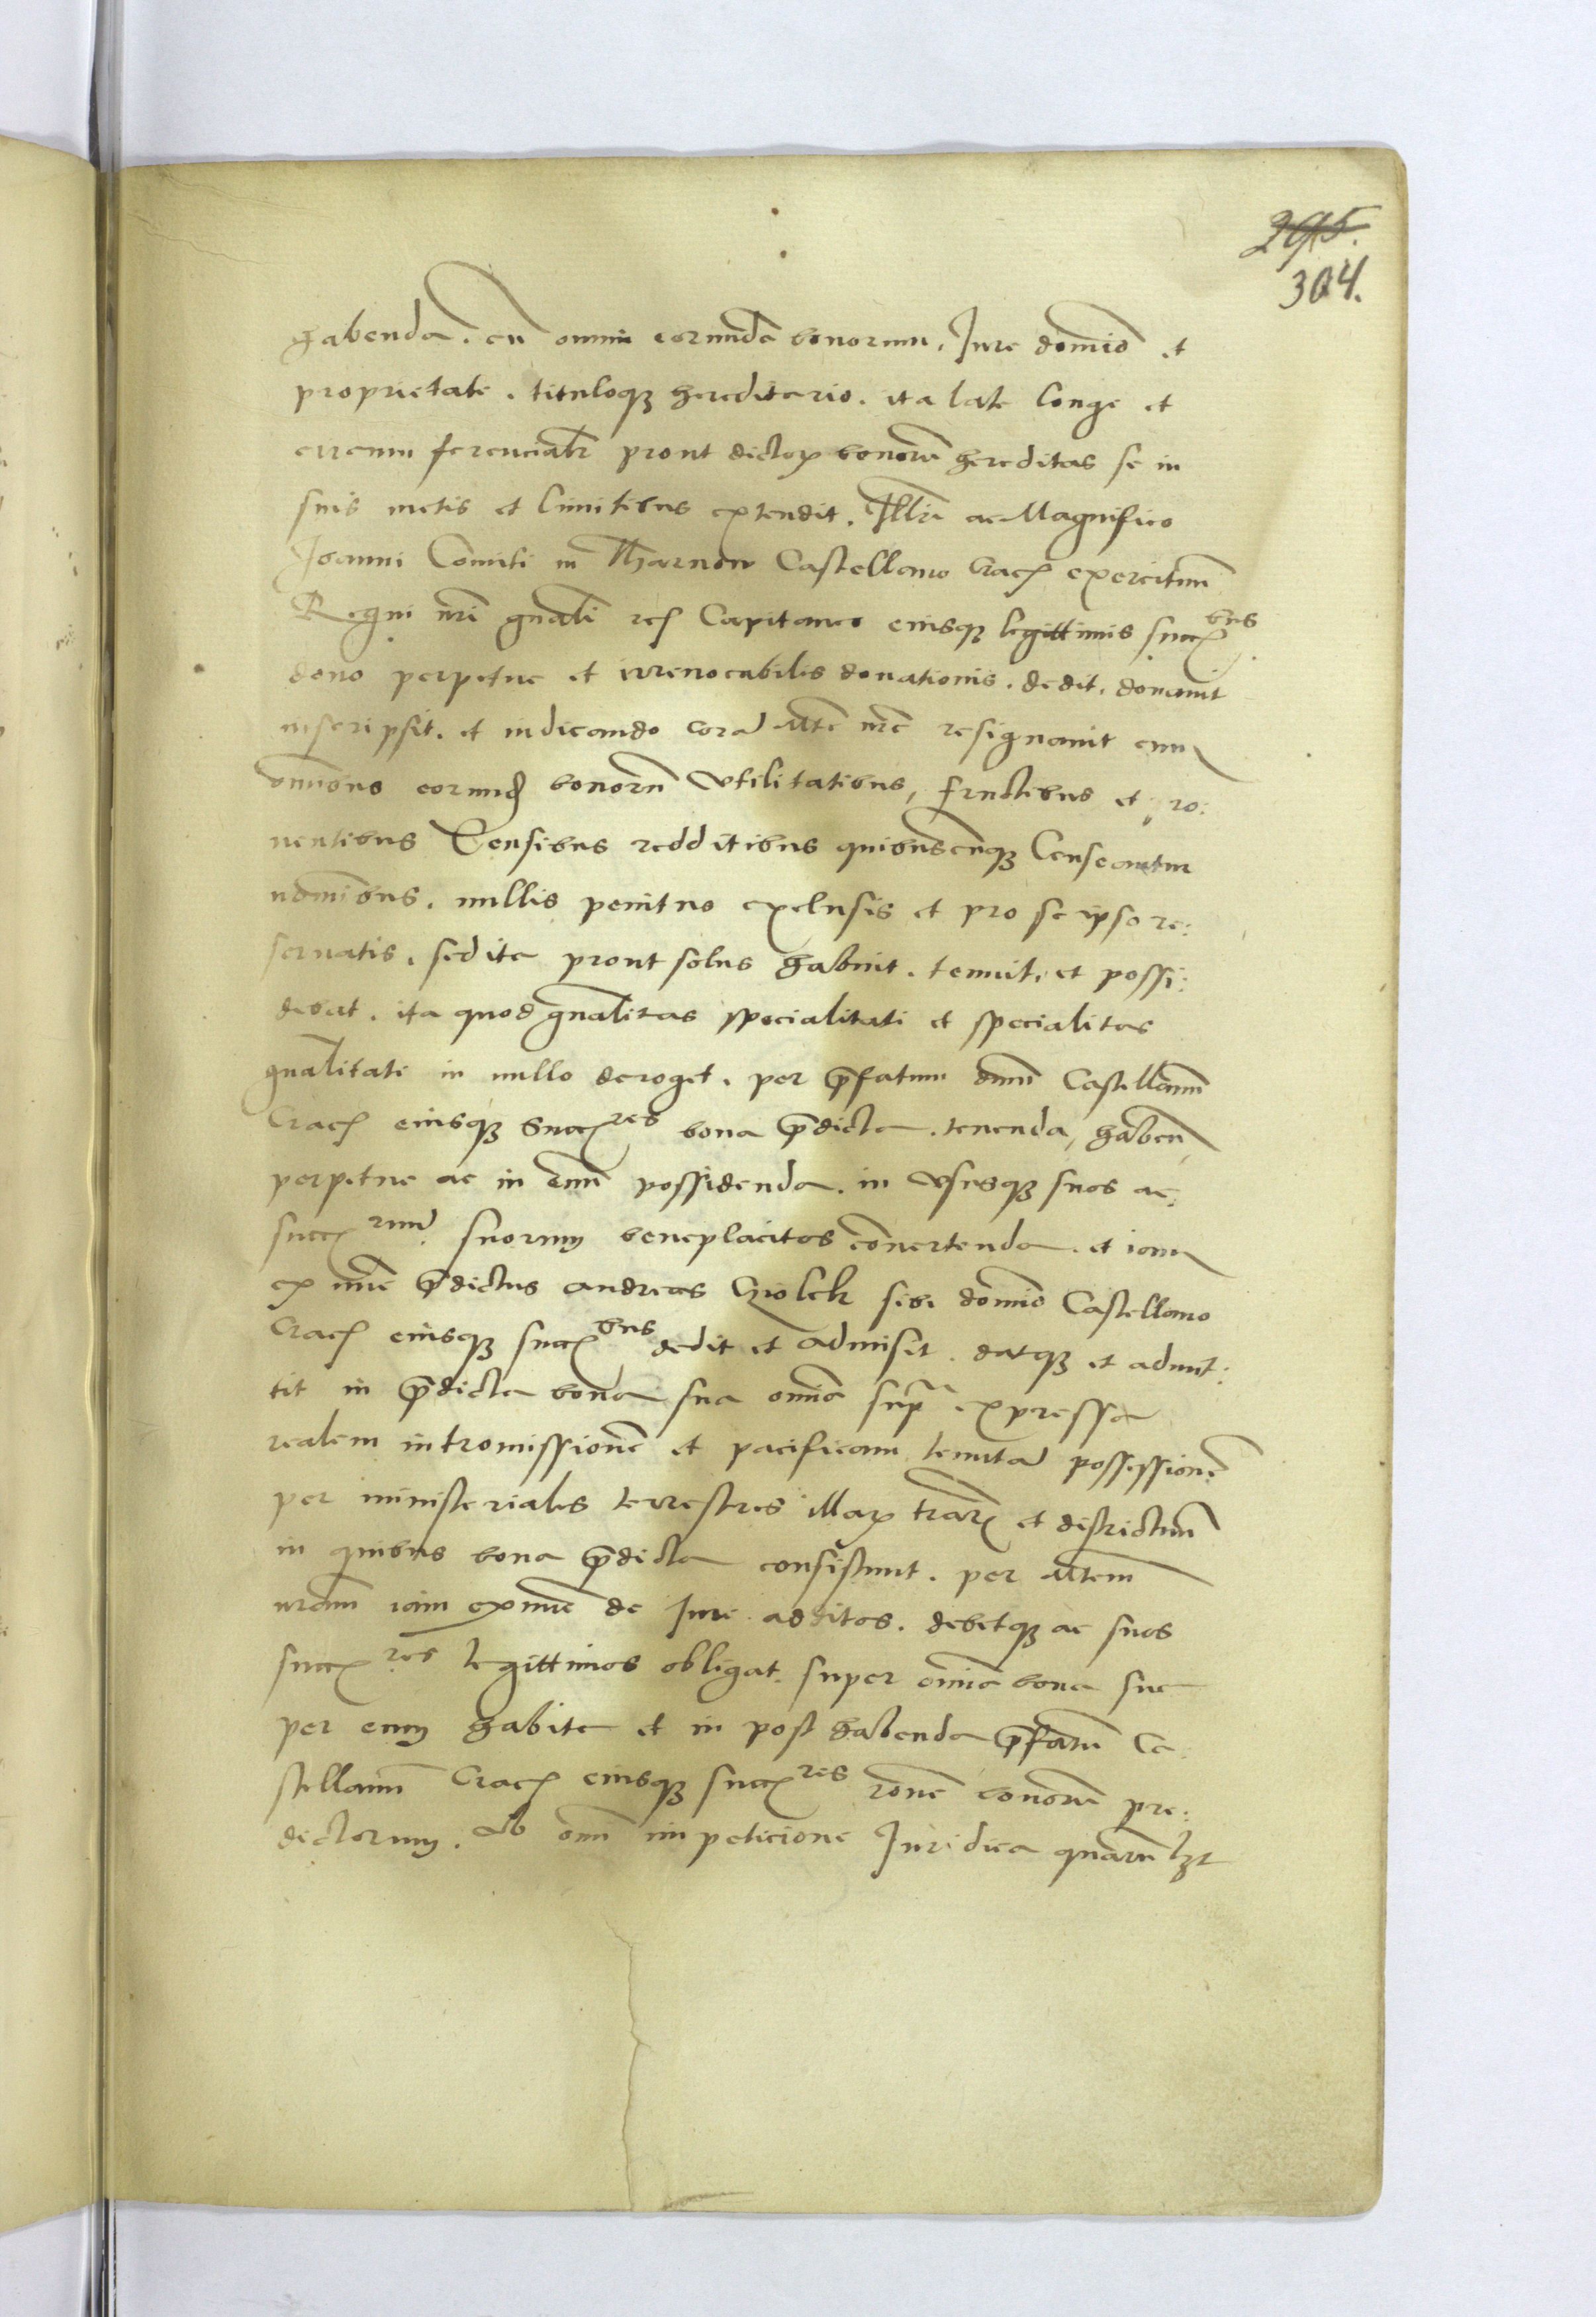 295.
304.
habenda. cū omni eorunde bonorum. Jure domīo et
proprietate. tituloqꝫ hereditario. ita late longe et
circumferencialr̄ prout dictoꝝ bonorū hereditas se in
suis metis et limitibus extendit. Illrī ac Magnifico
Joanni Comiti in Tharnow Castellano Crac̄ exercituū
Regni nr̄i gn̄ali Capitaneo eiusqꝫ legittimis succ̄bus
dono perpetue et irreuocabilis donationis. dedit. donauit
inscripsit. et indicando corā Mte nr̄a resignauit cum
omnibus eorund̄ bonorū vtilitatibus, fructibus et pro:
uentibus Censibus redditibus quibuscūqꝫ Censeantur
nom̄ibus. nullis penitus exclusis et pro se ipso re:
seruatis. sed ita prout solus habuit. tenuit. et possi:
debat. ita quod gn̄alitas specialitati et specialitas
gn̄alitati in nullo deroget. per p̄fatum dnū Castellanū
Crac̄ eiusqꝫ Succ̄res bona p̄dicta. tenenda, haben̄
perpetue ac in euū possidenda. in vsusqꝫ suos ac
succ̄rum suorum beneplacitos cōuertenda. et iam
ex nūc p̄dictus andreas Cziolek sibi domīo Castellano
Crac̄ eiusqꝫ succ̄bus dedit et admisit. datqꝫ et admit:
tit in p̄dicta bona sua omīa supͣ expressa
realem intromissionē et pacificam tenutā possessionē
per ministeriales terrestres illaꝝ trar̄ et districtuū
in quibus bona p̄dicta consistunt. per Mtem
nr̄am iam exnūc de Jure additos. debetqꝫ ac suos
succ̄res legittimos obligat. super omīa bona sua
per eum habita et in post habenda p̄fatū Ca:
stellanū Crac̄ eiusqꝫ succ̄res rōne bonorū pre:
dictorum. Ab omī impeticione Juridica quarūlꝫt